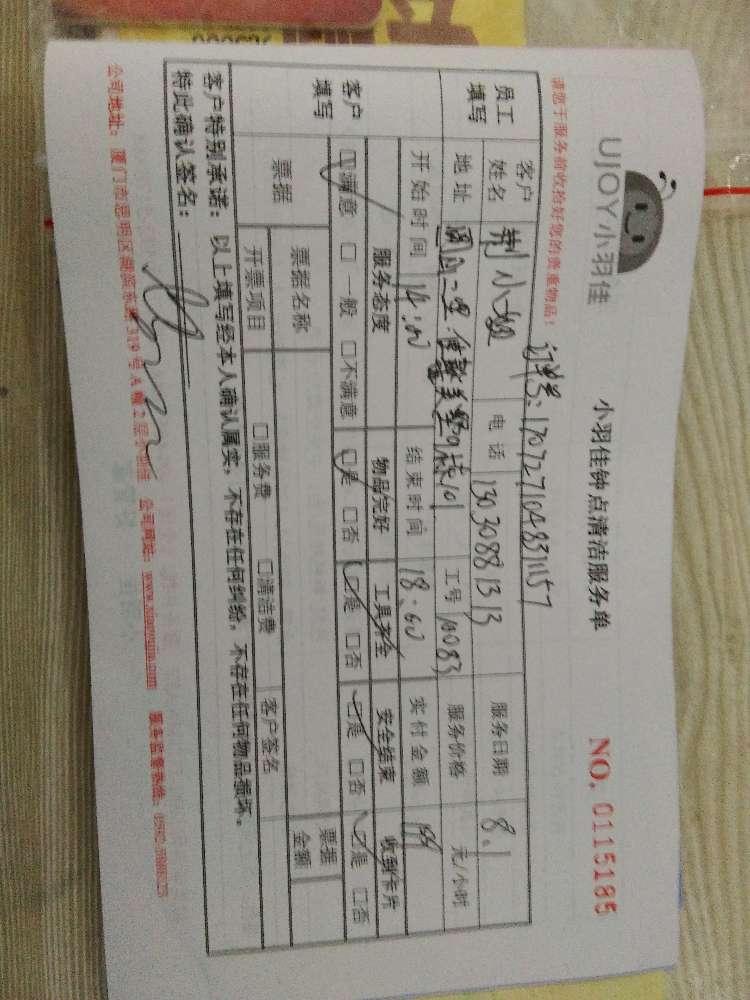 UJOY小羽佳
小羽佳钟点清洁服务单
NO. 0115185
请您于服务前收拾好您的贵重物品！
订单号：17072710483157
员工填写
客户姓名 荆小姐 电话 13030881313 服务日期 8.1
地址 工号 服务价格 元/小时
开始时间 14:00 结束时间 18:00 实付金额
客户填写
服务态度 物品完好 工具齐全 安全结束 收到卡片
☑满意 □一般 □不满意 ☑是 □否 ☑是 □否 ☑是 □否 ☑是 □否
票据 票据名称 票据金额
开票项目 □服务费 □清洁费 客户签名
客户特别承诺：以上填写经本人确认属实，不存在任何纠纷，不存在任何物品损坏。
特此确认签名：
公司地址：厦门市思明区 319号A幢2层 公司网站： 服务监督热线：